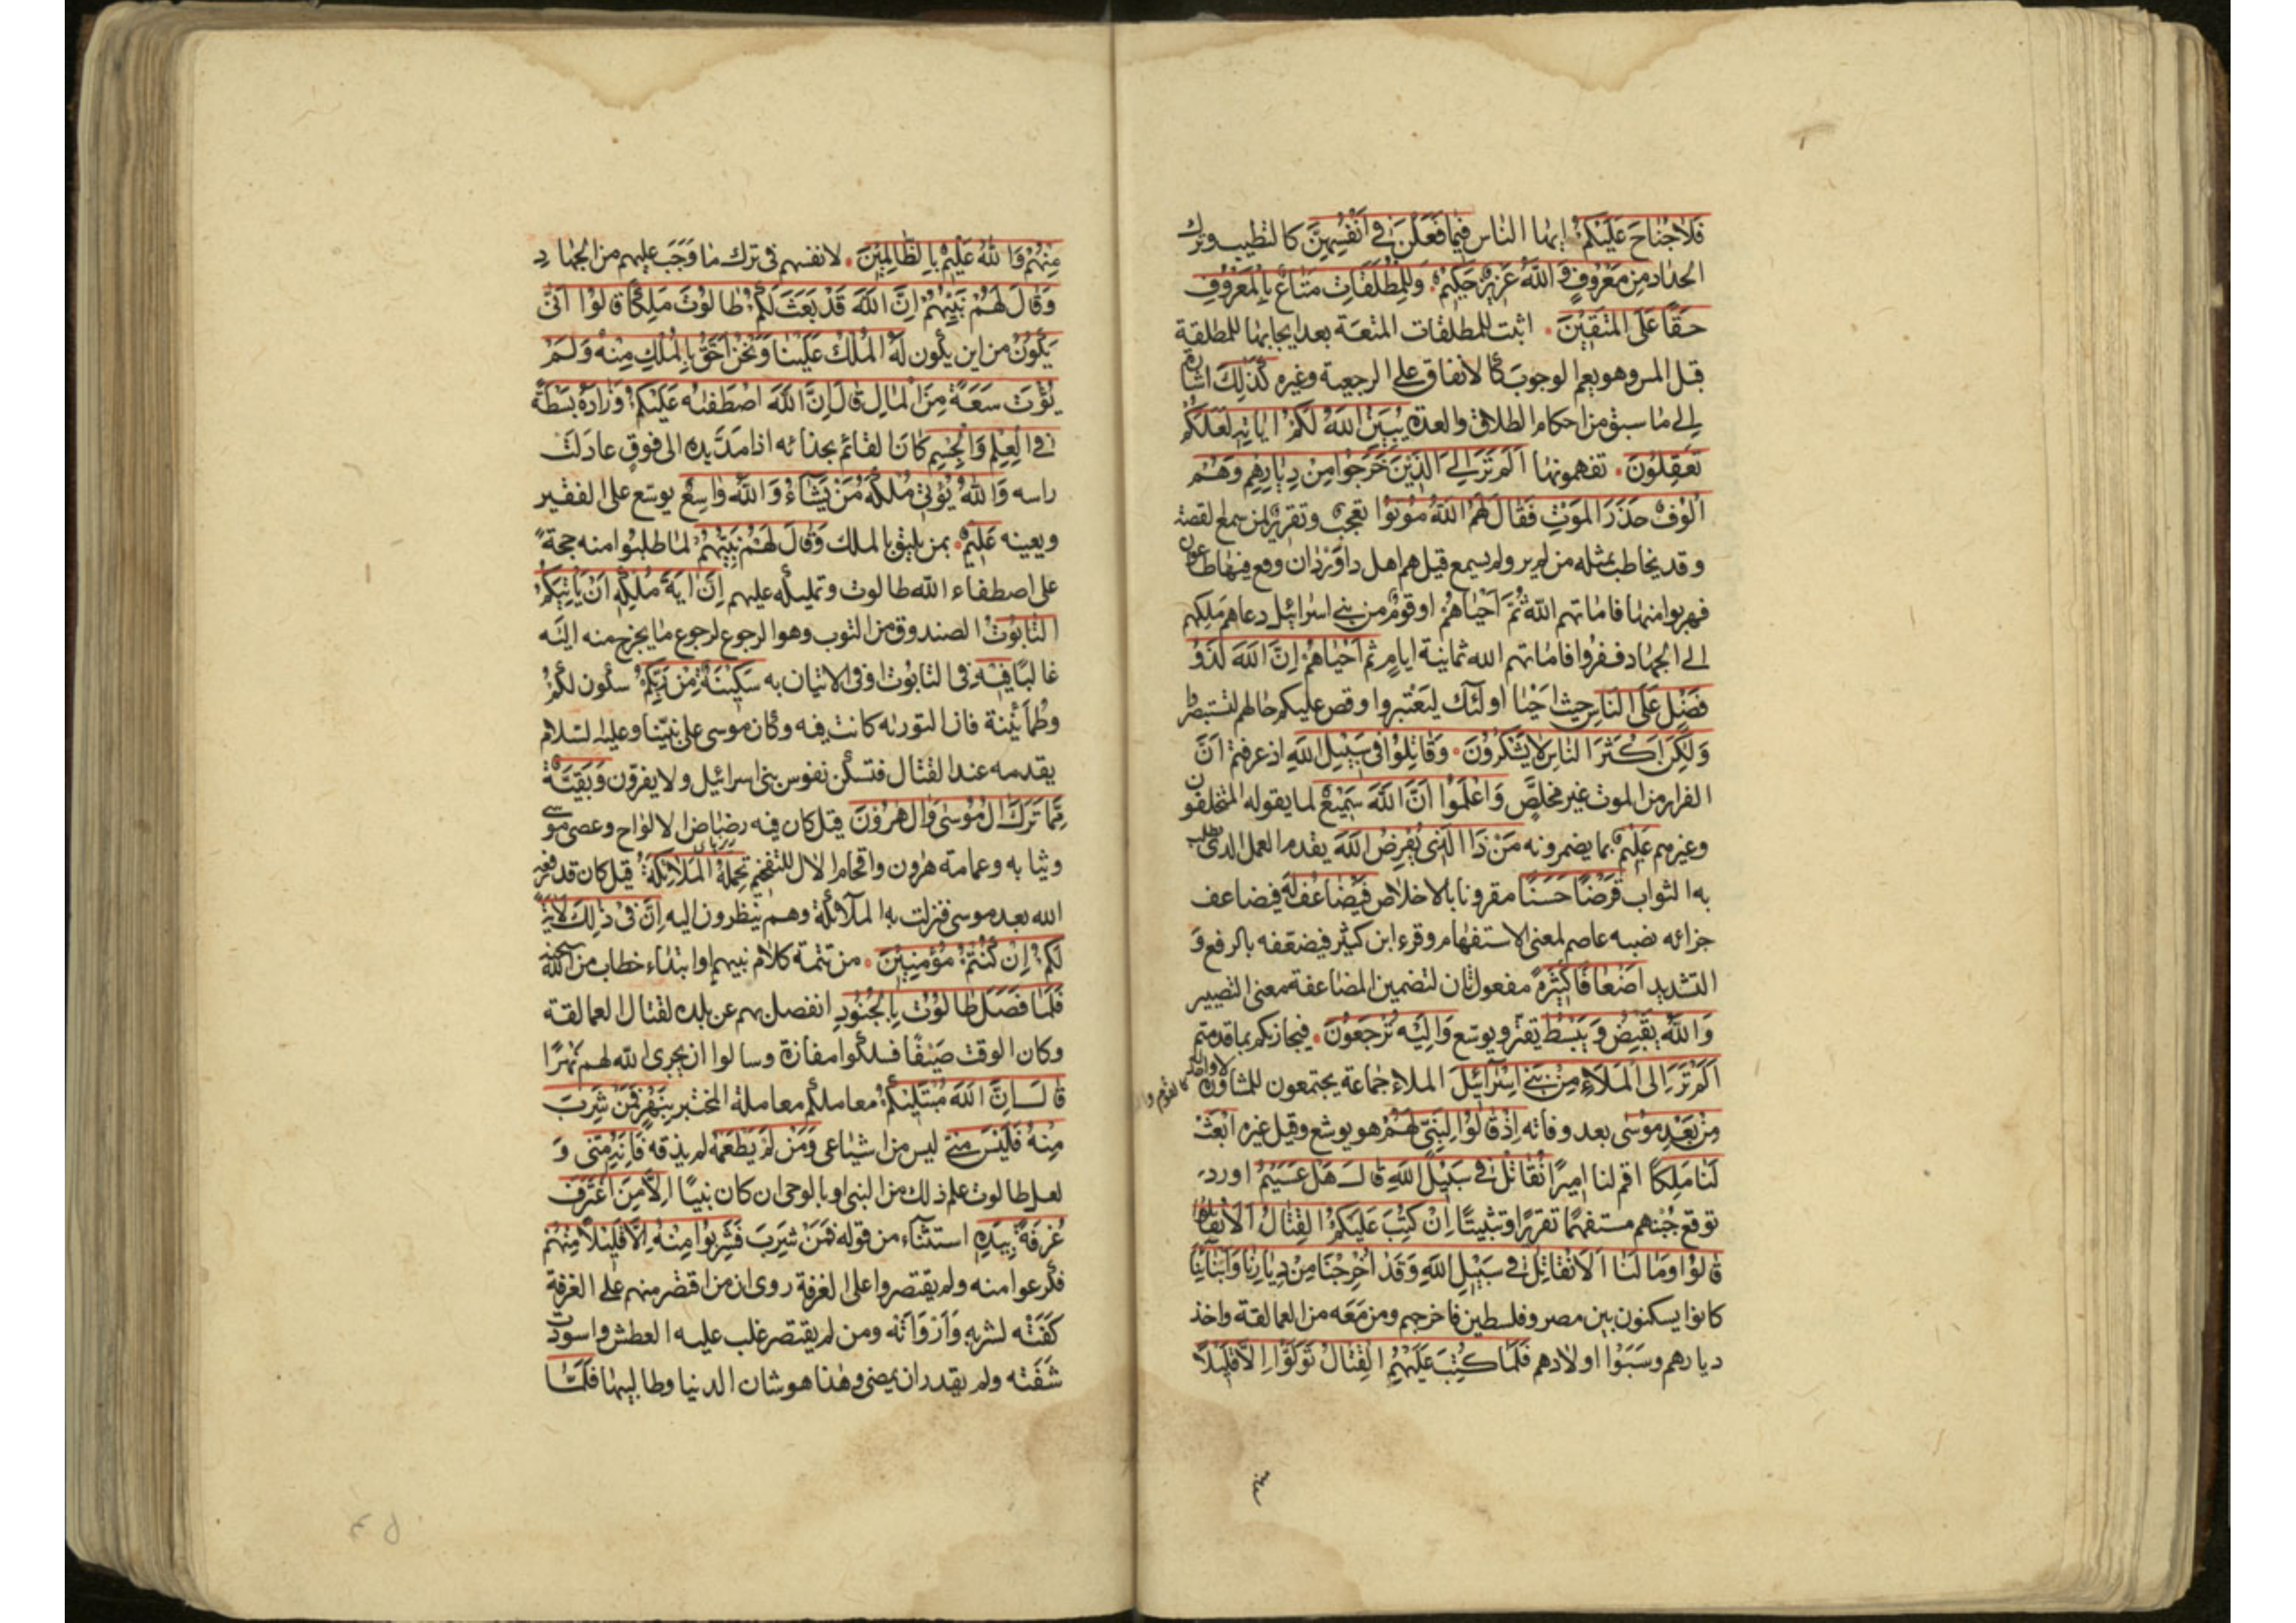 فَلَاجُنَاحَ عَلَيْكُمْ ايها الناس فِيمَا فَعَلْنَ فِي أَنْفُسِهِنَّ كالتطيب وترك
الحداد مِن مَعْرُوفٍ وَاللَّهُ عَزِيزٌ حَكِيمٌ. وَلِلْمُطَلَّقَاتِ مَتَاعٌ بِالْمَعْرُوفِ
حَقًّا عَلَى الْمُتَّقِينَ. اثبت للمطلقات المتعة بعد ايجابها للمطلقة
قبل المس وهو يعم الوجوب كالانفاق على الرجعية وغيره كَذَلِكَ اشارة
الى ما سبق من احكام الطلاق والعدة يُبَيِّنُ اللَّهُ لَكُمْ آيَاتِهِ لَعَلَّكُمْ
تَعْقِلُونَ. تفهمونها أَلَمْ تَرَ إِلَى الَّذِينَ خَرَجُوا مِنْ دِيَارِهِمْ وَهُمْ
أُلُوفٌ حَذَرَ الْمَوْتِ فَقَالَ لَهُمُ اللَّهُ مُوتُوا تعجيب وتقرير لمن سمع لقصة
وقد يخاطب بمثله من لم ير ولم يسمع قيل هم اهل داوردان وقع فيها طاعون
فهربوا منها فاماتهم الله ثُمَّ أَحْيَاهُمْ او قوم من بني اسرائيل دعاهم ملكهم
الى الجهاد ففروا فاماتهم الله ثمانية ايام ثم احياهم إِنَّ اللَّهَ لَذُو
فَضْلٍ عَلَى النَّاسِ حيث احيا اولئك ليعتبروا وقص عليكم حالهم لتستبصروا
وَلَكِنَّ أَكْثَرَ النَّاسِ لَا يَشْكُرُونَ. وَقَاتِلُوا فِي سَبِيلِ اللَّهِ اذ عرفتم ان
الفرار من الموت غير مخلص وَاعْلَمُوا أَنَّ اللَّهَ سَمِيعٌ لما يقوله المتخلفون
وغيرهم عَلِيمٌ بما يضمرونه مَنْ ذَا الَّذِي يُقْرِضُ اللَّهَ يقدم العمل الذى يطلب
به الثواب قَرْضًا حَسَنًا مقرونا بالاخلاص فَيُضَاعِفَهُ لَهُ فيضاعف
جزائه نصبه عاصم لمعنى الاستفهام وقرء ابن كثير فيضعفه بالرفع و
التشديد أَضْعَافًا كَثِيرَةً مفعول ثان لتضمين المضاعفة معنى التصيير
وَاللَّهُ يَقْبِضُ وَيَبْسُطُ يقتر ويوسع وَإِلَيْهِ تُرْجَعُونَ. فيجازيكم بما قدمتم
أَلَمْ تَرَ إِلَى الْمَلَإِ مِنْ بَنِي إِسْرَائِيلَ الملاء جماعة يجتمعون للمشاورة لا واحد له كالقوم
مِنْ بَعْدِ مُوسَى بعد وفاته إِذْ قَالُوا لِنَبِيٍّ لَهُمُ هو يوشع وقيل غيره ابْعَثْ
لَنَا مَلِكًا اقم لنا اميرًا نُقَاتِلْ فِي سَبِيلِ اللَّهِ قَالَ هَلْ عَسَيْتُمْ اورد
توقع جبنهم مستفهما تقريرًا وتثبيتًا إِنْ كُتِبَ عَلَيْكُمُ الْقِتَالُ أَلَّا تُقَاتِلُوا
قَالُوا وَمَا لَنَا أَلَّا نُقَاتِلَ فِي سَبِيلِ اللَّهِ وَقَدْ أُخْرِجْنَا مِنْ دِيَارِنَا وَأَبْنَائِنَا
كانوا يسكنون بين مصر وفلسطين فاخرجهم ومن معه من العمالقة واخذ
ديارهم وسَبَوْا اولادهم فَلَمَّا كُتِبَ عَلَيْهِمُ الْقِتَالُ تَوَلَّوْا إِلَّا قَلِيلًا
مِنْهُمْ وَاللَّهُ عَلِيمٌ بِالظَّالِمِينَ. لانفسهم فى ترك ما وَجَبَ عليهم من الجهاد
وَقَالَ لَهُمْ نَبِيُّهُمْ إِنَّ اللَّهَ قَدْ بَعَثَ لَكُمْ طَالُوتَ مَلِكًا قَالُوا أَنَّى
يَكُونُ من اين يكون لَهُ الْمُلْكُ عَلَيْنَا وَنَحْنُ أَحَقُّ بِالْمُلْكِ مِنْهُ وَلَمْ
يُؤْتَ سَعَةً مِنَ الْمَالِ قَالَ إِنَّ اللَّهَ اصْطَفَاهُ عَلَيْكُمْ وَزَادَهُ بَسْطَةً
فِي الْعِلْمِ وَالْجِسْمِ كان القائم بحذائه اذا مد يده الى فوق عادلت
راسه وَاللَّهُ يُؤْتِي مُلْكَهُ مَنْ يَشَاءُ وَاللَّهُ وَاسِعٌ يوسع على الفقير
ويعينه عَلِيمٌ. بمن يليق بالملك وَقَالَ لَهُمْ نَبِيُّهُمْ لما طلبوا منه حجة
على اصطفاء الله طالوت وتمليكه عليهم إِنَّ آيَةَ مُلْكِهِ أَنْ يَأْتِيَكُمُ
التَّابُوتُ الصندوق من التوب وهو الرجوع لرجوع ما يخرج منه اليه
غالبًا فِيهِ فى التابوت او فى الاتيان به سَكِينَةٌ مِنْ رَبِّكُمْ سكون لكم
وطمأنينة فان التورية كانت فيه وكان موسى على نبينا وعليه السلام
يقدمه عند القتال فتسكن نفوس بنى اسرائيل ولا يفرون وَبَقِيَّةٌ
مِمَّا تَرَكَ آلُ مُوسَى وَآلُ هَارُونَ قيل كان فيه رضاض الالواح وعصى موسى
وثيابه وعمامة هرون واقحام الآل للتفخيم تَحْمِلُهُ الْمَلَائِكَةُ قيل كان قد رفعه
الله بعد موسى فنزلت به الملائكة وهم ينظرون اليه إِنَّ فِي ذَلِكَ لَآيَةً
لَكُمْ إِنْ كُنْتُمْ مُؤْمِنِينَ. من تتمة كلام نبيهم او ابتداء خطاب من الله سبحانه
فَلَمَّا فَصَلَ طَالُوتُ بِالْجُنُودِ انفصل بهم عن بلده لقتال العمالقة
وكان الوقت صيفًا فسلكوا مفازة وسالوا ان يجرى الله لهم نهرًا
قَالَ إِنَّ اللَّهَ مُبْتَلِيكُمْ معاملكم معاملة المختبر بِنَهَرٍ فَمَنْ شَرِبَ
مِنْهُ فَلَيْسَ مِنِّي ليس من اشياعى وَمَنْ لَمْ يَطْعَمْهُ لم يذقه فَإِنَّهُ مِنِّي و
لعل طالوت علم ذلك من النبى او بالوحى ان كان نبيًا إِلَّا مَنِ اغْتَرَفَ
غُرْفَةً بِيَدِهِ استثناء من قوله فَمَنْ شَرِبَ فَشَرِبُوا مِنْهُ إِلَّا قَلِيلًا مِنْهُمْ
فكرعوا منه ولم يقتصروا على الغرفة روى ان من اقتصر منهم على الغرفة
كَفَتْه لشربه وَأدَوَاته ومن لم يقتصر غلب عليه العطش واسودت
شَفَته ولم يقدر ان يمضى وهذا هو شان الدنيا وطالبيها فَلَمَّا